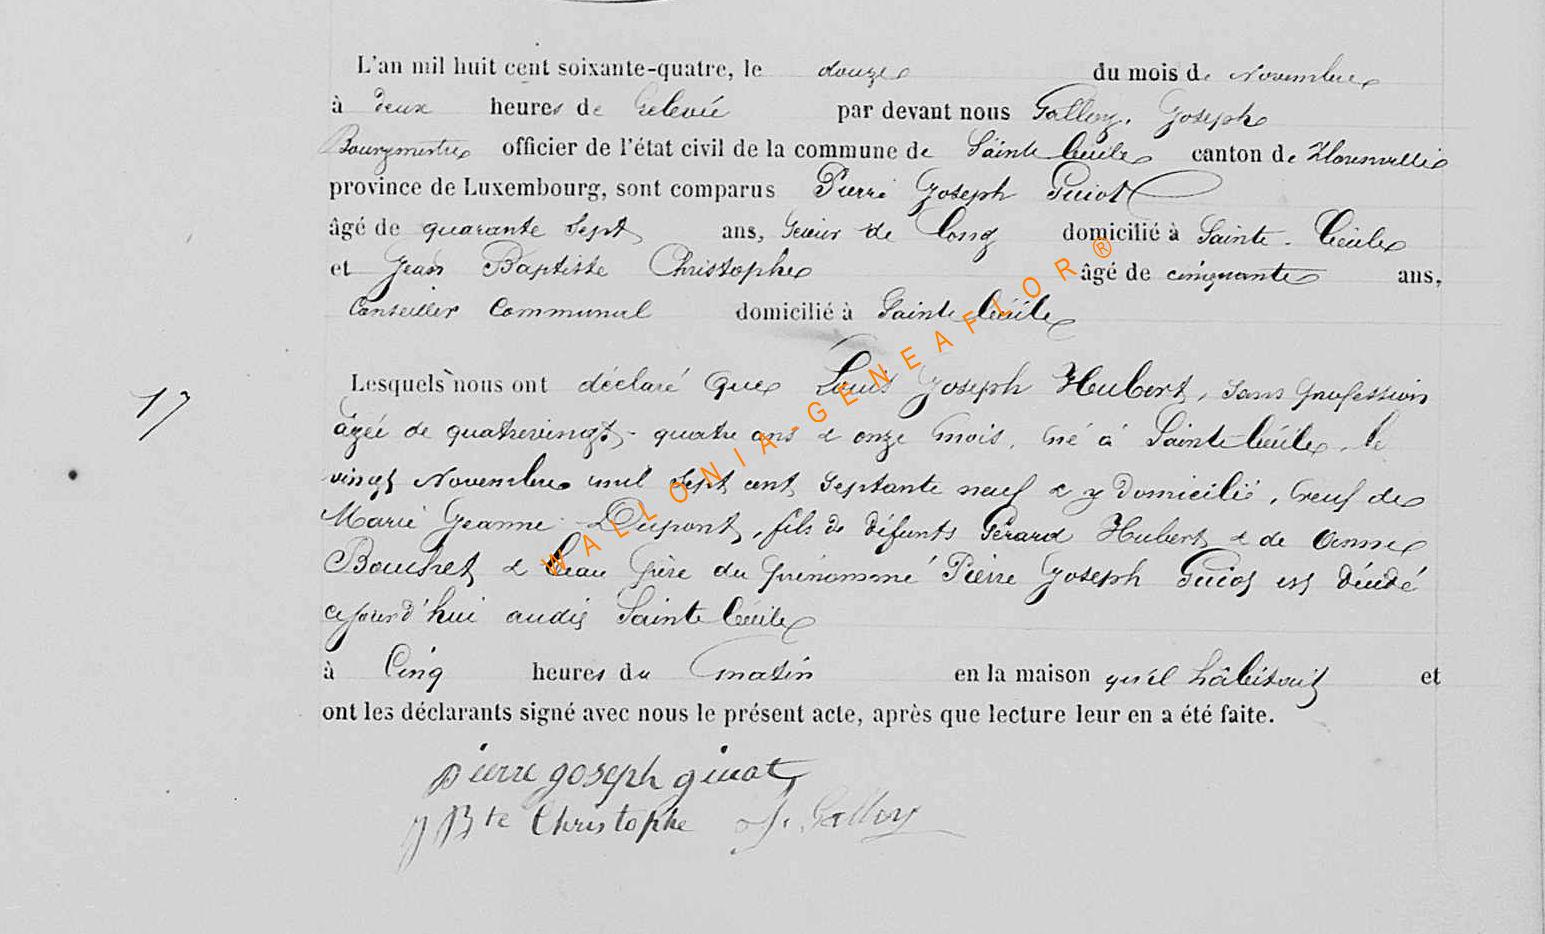 L'an mil huit cent soixante-quatre, le douze du mois de Novembre
à deux heures de relevée par devant nous Galloy, Joseph
Bourgmestre officier de l'état civil de la commune de Sainte Cécile canton de Florenville
province de Luxembourg, sont comparus Pierre Joseph Guiot
âgé de quarante sept ans, scieur de long domicilié à Sainte-Cécile
et Jean Baptiste Christophe âgé de cinquante ans,
Conseiller Communal domicilié à Sainte Cécile
17
Lesquels nous ont déclaré que Louis Joseph Hubert, sans profession
âgée de quatrevingt-quatre ans & onze mois, né à Sainte Cécile, le
vingt Novembre mil sept cent septante neuf & y domicilié, veuf de
Marie Jeanne Dupont, fils de défunts Gérard Hubert & de Anne
Bouchet & beau frère du prénommé Pierre Joseph Guiot est décédé
cejourd'hui audit Sainte Cécile
à Cinq heures du matin en la maison qu'il habitait et
ont les déclarants signé avec nous le présent acte, après que lecture leur en a été faite.
pierre joseph guiot
J Bte Christophe J. Galloy
WALLONIA-GENEAFLOR®